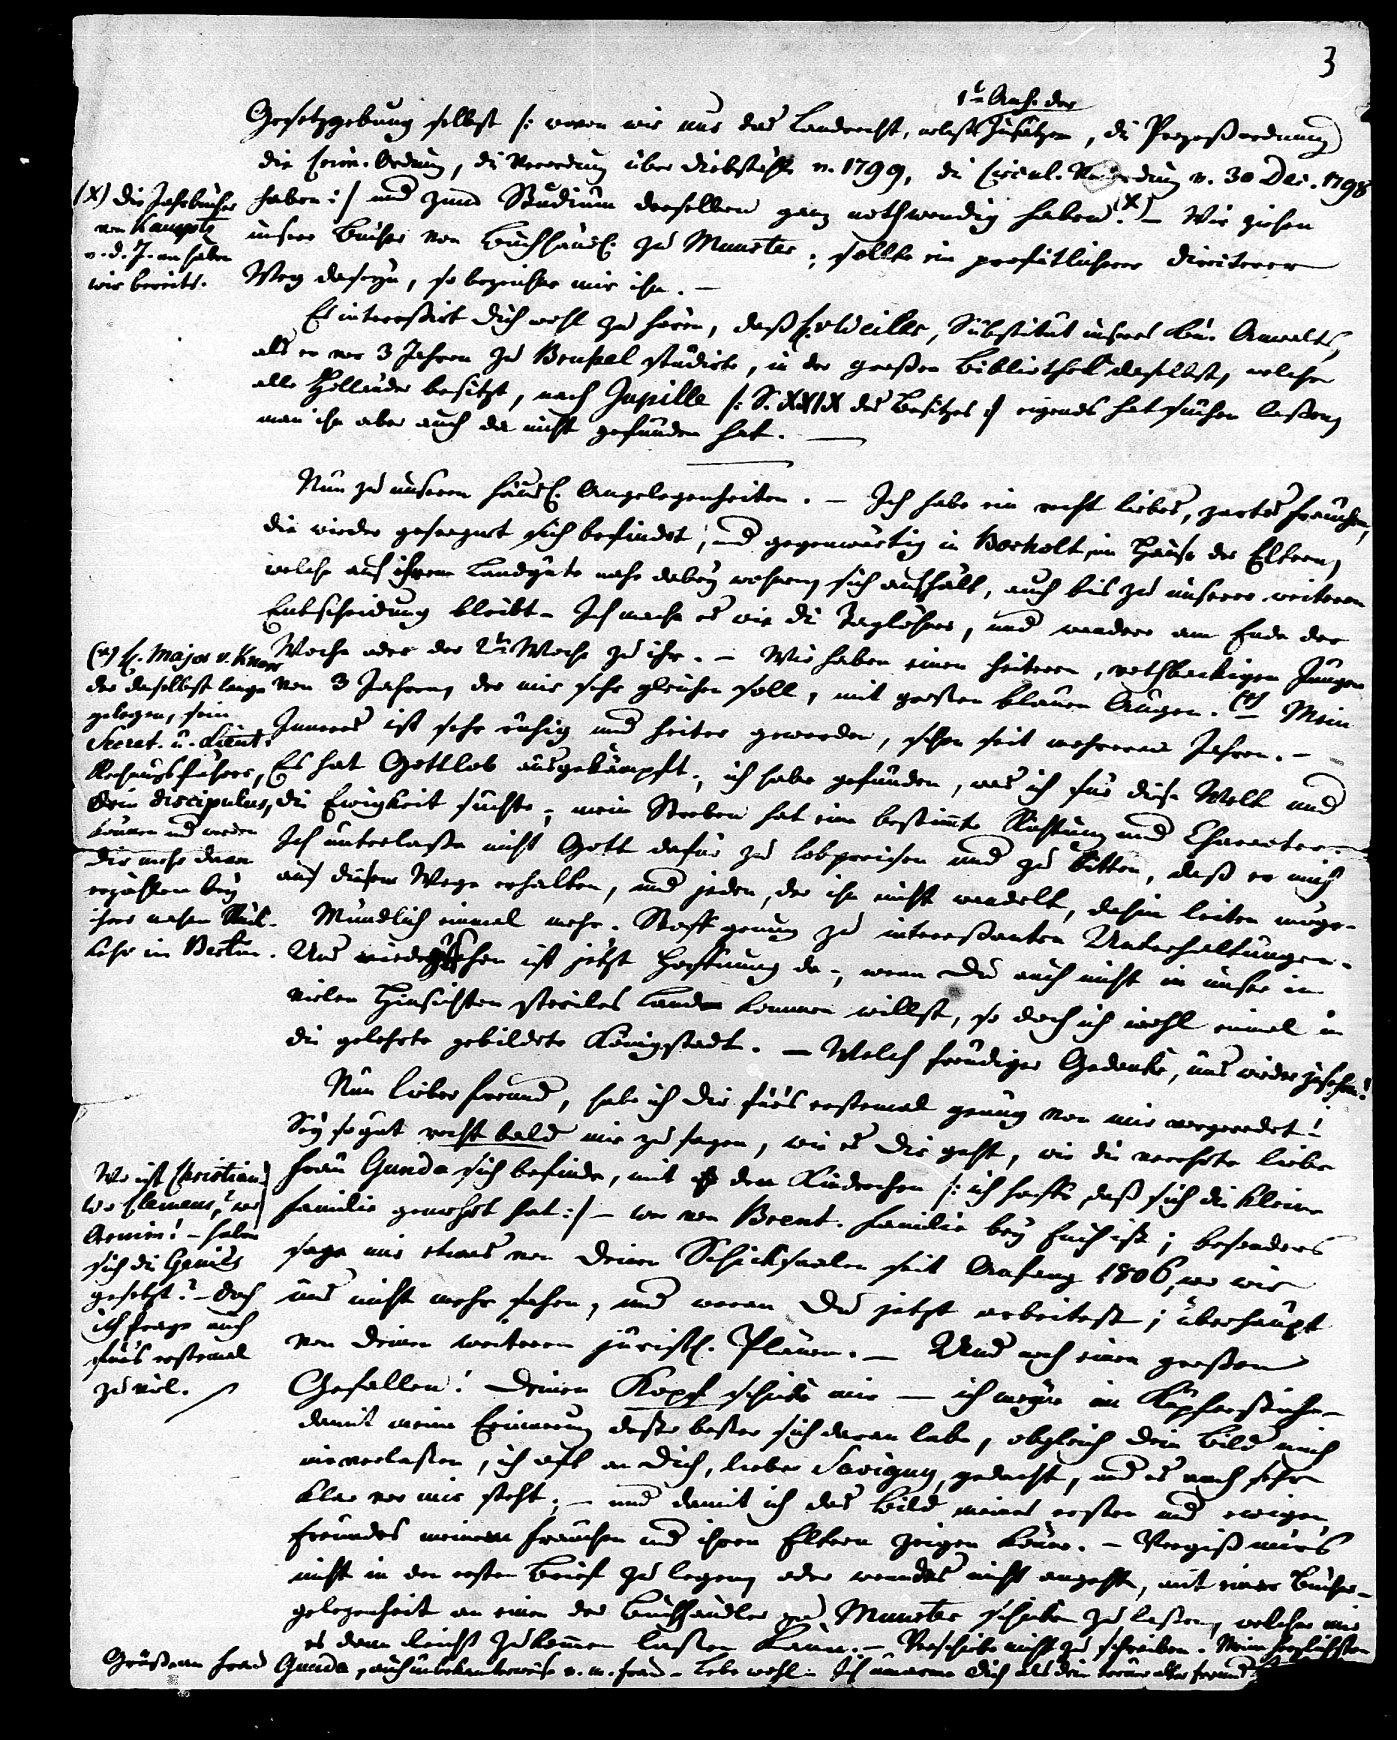 3
1t Anh. der
Gesetzgebung selbst /: wovon wir nur das Landrecht, nebst Zusätzen, di Prozeßordnung
die Crim. Ordnung, di Verordnung über Diebstähle v. 1799, di Circul. Verordnung v. 30 Dec. 1798
haben :/ und zum Studium derselben ganz nothwendig haben. (x) – Wir ziehen
unsere Bücher von Buchhändl. zu Munster; sollte ein profitlicherer directerer
Weg daseyn, so bezeichne mir ihn. –
(x) die Jahrbücher
von Kamptz
v. d. J. an haben
wir bereits.
Es interessirt dich wohl zu hören, daß H. v. Weiller, Substitut unsres Kön. Anwalts,
als er vor 3 Jahren zu Brussel studirte, in der großen Bibliothek daselbst, welche
alle Holländer besitzt, nach Jupille /: S. XXIX des Besitzes :/ eigends hat suchen lassen,
man ihn aber auch da nicht gefunden hat. –
Nun zu unseren häusl. Angelegenheiten. – Ich habe ein recht liebes, zartes Frauchen,
die wieder gesegnet sich befindet, und gegenwärtig in Bocholt, im Hause der Eltern,
welche auf ihrem Landgute nahe dabey wohnen, sich aufhält, auch bis zu unserer weiteren
Entscheidung bleibt – Ich mache es wie di Taglöhner, und wandere am Ende der
Woche oder der 2ten Woche zu ihr. – Wir haben einen heiteren, rothbackigen Jungen
von 3 Jahren, der mir sehr gleichen soll, mit großen blauen Augen. (x) Mein
Inneres ist sehr ruhig und heiter geworden, schon seit mehreren Jahren. –
Es hat Gottlob ausgekämpft; ich habe gefunden, was ich für diese Welt und
die Ewigkeit suchte; mein Streben hat eine bestimte Richtung und Character. –
Ich unterlasse nicht Gott dafür zu lobpreisen und zu bitten, daß er mich
auf diesem Wege erhalten, und jeden, der ihn nicht wandelt, dahin leiten möge. –
Mündlich einmal mehr. Stoff genug zu interessanten Unterhaltungen. –
Uns wiederzusehen ist jetzt Hoffnung da –, wenn Du auch nicht in unser in
vielen Hinsichten steriles Land kommen willst, so doch ich wohl einmal in
die gelehrte gebildete Königstadt. – Welch freudiger Gedanke, uns wieder zu sehen!
(x) H. Major v. Knorr
der daselbst lange
gelegen, sein
Secret. u. Lieut.
Rechnungsführer,
dein discipulus,
können und werden
dir mehr davon
erzählen bey
ihrer nahen Rück-
kehr in Berlin.
Nun lieber Freund, habe ich dir für's erstemal genug von mir vorgeredet!
Sey so gut recht bald mir zu sagen, wie es dir geht, wie die verehrte liebe
Frau Gunda sich befinde, mit den Kinderchen /: ich hoffe daß sich die kleine
Familie gemehrt hat :/ – wer von Brent. Familie bey Euch ist; besonders
sage mir etwas von deinen Schicksaalen seit Anfang 1806, wo wir
uns nicht mehr sahen, und woran Du jetzt arbeitest; überhaupt
von deinen weiteren jurist. Planen. – Und noch einen großen
Gefallen! deinen Kopf schicke mir – ich meyne im Kupferstiche –
damit meine Erinnerung desto besser sich daran labe, obgleich dein Bild mich
nie verlassen, ich oft an Dich, lieber Savigny, gedacht, und es noch sehr
klar vor mir steht; – und damit ich das Bild meines ersten und ewigen
Freundes meinem Frauchen und ihren Eltern zeigen könne. – Vergiß mir's
nicht in den ersten Brief zu legen, oder wenn das nicht angeht, mit einer Bücher-
gelegenheit an einen der Buchhändler zu Munster schicken zu lassen, welcher mir
es dann leicht zukommen lassen kann. – Verschiebe nicht zu schreiben. Meine herzlichsten
Grüße an Frau Gunda, auch unbekannterweise v. m. Frau – Lebe wohl – Ich umarme dich als dein treuer alter Freund
Wo ist Christian,
wo Clemens?, wo
Arnim! – haben
sich di Genies
gesetzt? – doch
ich frage auch
für's erstemal
zu viel.